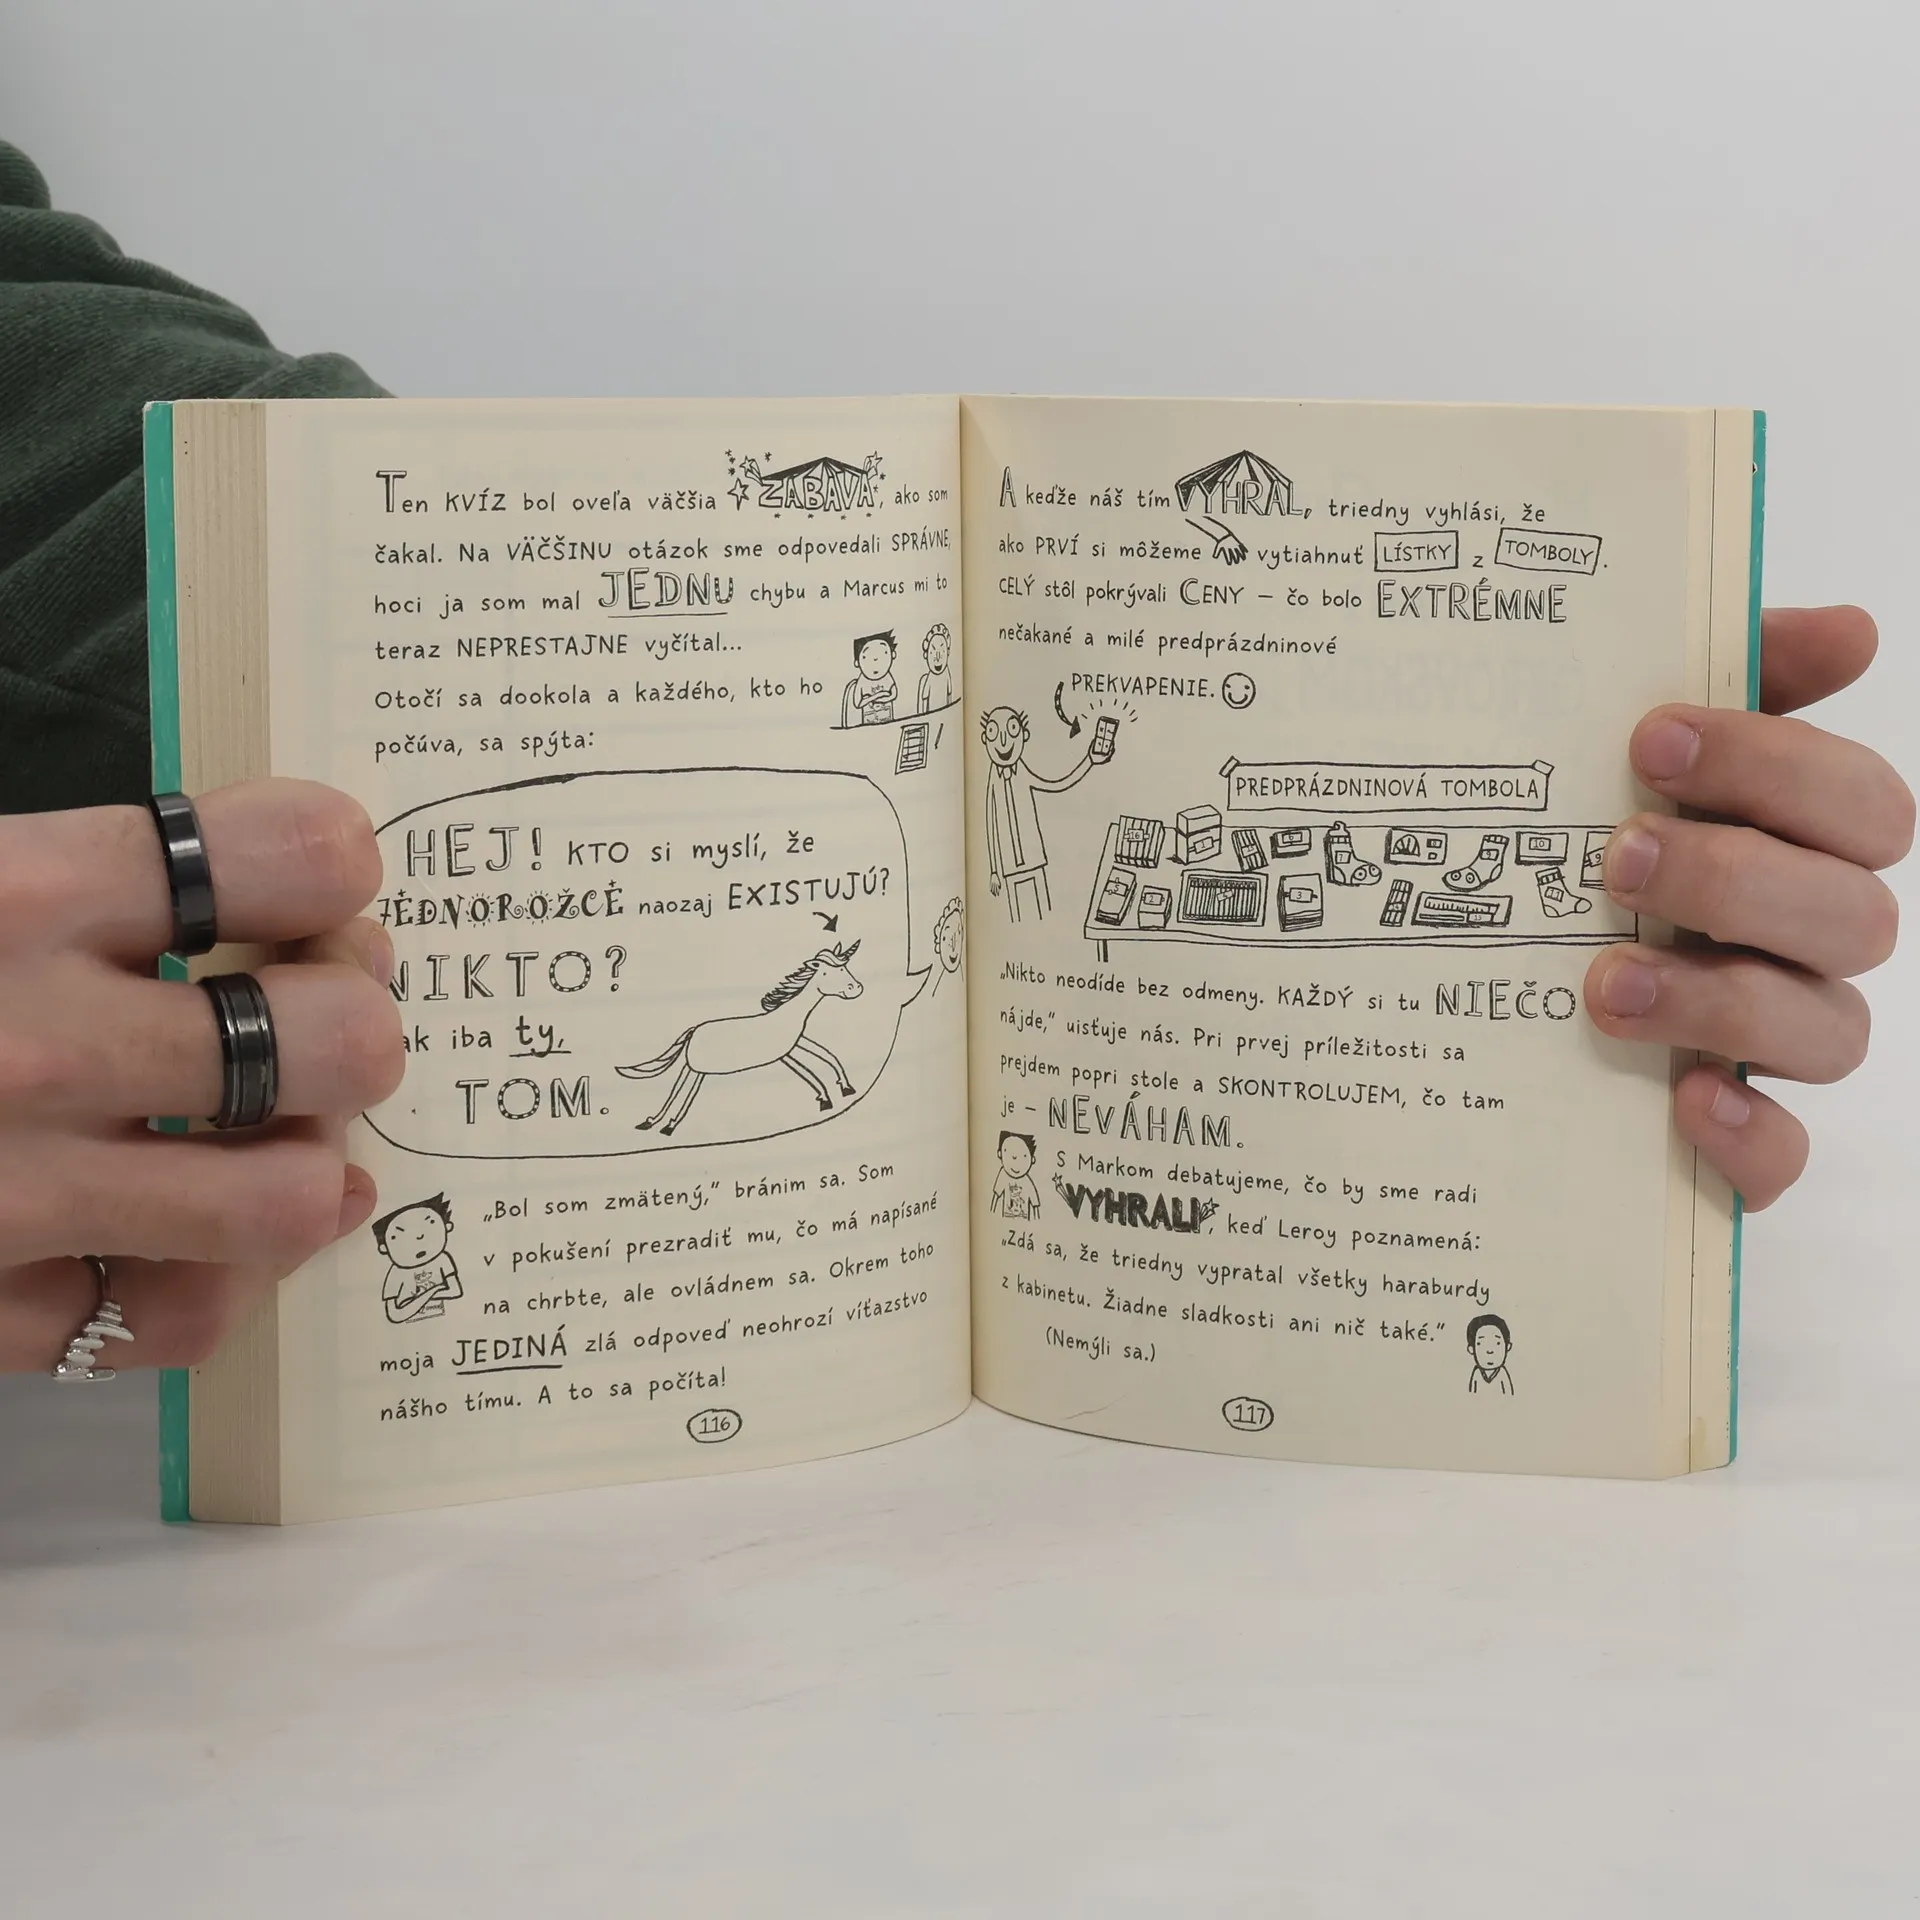 Ten KVÍZ bol oveľa väčšia ZÁBAVA, ako som
čakal. Na VÄČŠINU otázok sme odpovedali SPRÁVNE,
hoci ja som mal JEDNU chybu a Marcus mi to
teraz NEPRESTAJNE vyčítal...
Otočí sa dookola a každého, kto ho
počúva, sa spýta:
HEJ! KTO si myslí, že
JEDNOROŽCE naozaj EXISTUJÚ?
NIKTO?
ak iba ty,
TOM.
„Bol som zmätený,“ bránim sa. Som
v pokušení prezradiť mu, čo má napísané
na chrbte, ale ovládnem sa. Okrem toho
moja JEDINÁ zlá odpoveď neohrozí víťazstvo
nášho tímu. A to sa počíta!
116
A keďže náš tím VYHRAL, triedny vyhlási, že
ako PRVÍ si môžeme vytiahnuť LÍSTKY z TOMBOLY.
CELÝ stôl pokrývali CENY – čo bolo EXTRÉMNE
nečakané a milé predprázdninové
PREKVAPENIE.
PREDPRÁZDNINOVÁ TOMBOLA
„Nikto neodíde bez odmeny. KAŽDÝ si tu NIEČO
nájde,“ uisťuje nás. Pri prvej príležitosti sa
prejdem popri stole a SKONTROLUJEM, čo tam
je – NEVÁHAM.
S Markom debatujeme, čo by sme radi
VYHRALI, keď Leroy poznamená:
„Zdá sa, že triedny vypratal všetky haraburdy
z kabinetu. Žiadne sladkosti ani nič také.“
(Nemýli sa.)
117